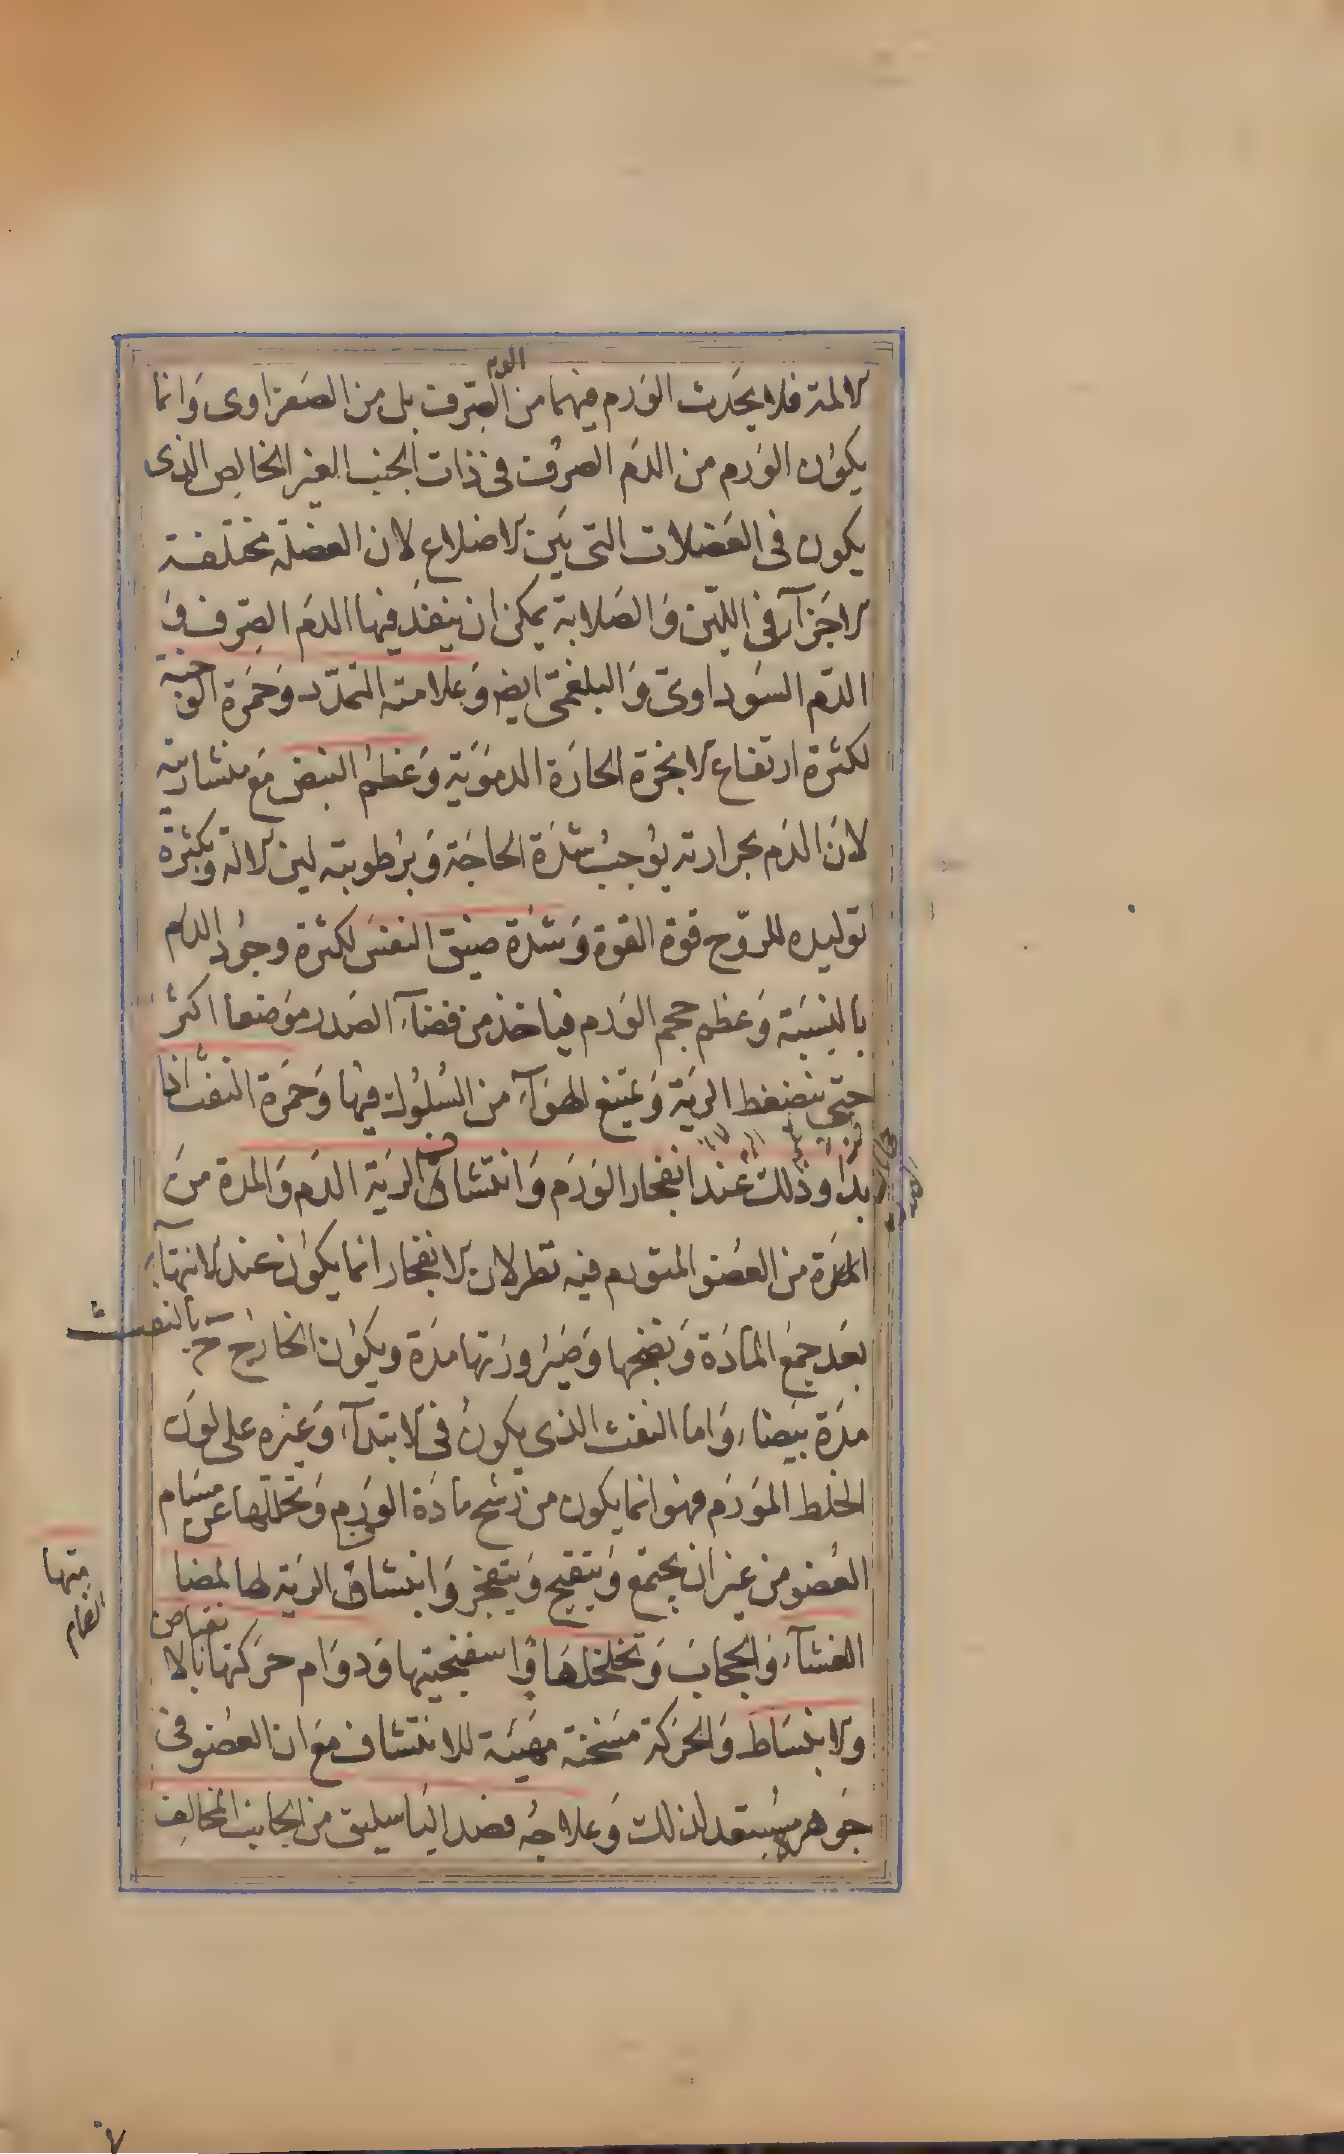 الدم
الالمة فلا يحدث الورم فيهما من الصرف بل من الصفراوى وانما
يكون الورم من الدم الصرف فى ذات الجنب الغير الخالص الذى
يكون فى العضلات التى بين الاضلاع لان العضلة مختلفة
الاجزآء فى اللين والصلابة يمكن ان ينفذ فيها الدم الصرف و
الدم السوداوى والبلغمى ايضا وعلامته التمدد وحمرة الوجنة
لكثرة ارتفاع الابخرة الحارة الدموية وعظم النبض مع منشارية
لان الدم بحرارته يوجب شدة الحاجة وبرطوبته لين الالة وبكثرة
توليده للروح قوة القوة وشدة ضيق النفس لكثرة وجود الدم
بالنسبة وعظم حجم الورم فياخذ من فضآء الصدر موضعا اكثر
حتى ينضغط الرية ويمتنع الهوآء من السلوك فيها وحمرة النفث اذا
بدا وذلك عند انفجار الورم وانتشاف الرية الدم والمدة من
المدة من العضو المتورم فيه نظر لان الانفجار انما يكون عند الانتهآء
بعد جمع المادة ونضجها وصيرورتها مدة ويكون الخارج ح بالنفث
مدة بيضاء واما النفث الذى يكون فى الابتدآء وغيره على لون
الخلط المورم فهو انما يكون من رشح مادة الورم وتحللها عن مسام
العضو من غير ان يجتمع ويتقيح ويتفجر وانتشاف الرية لها لمضا
متها
الغشآء والحجاب وتخلخلها واسفنجيتها ودوام حركتها بالانقباض
والانبساط والحركة مسخنة مهيئة للانتشاف مع ان العضو فى
جوهره مستعد لذلك وعلاجه فصد الباسليق من الجانب المخالف